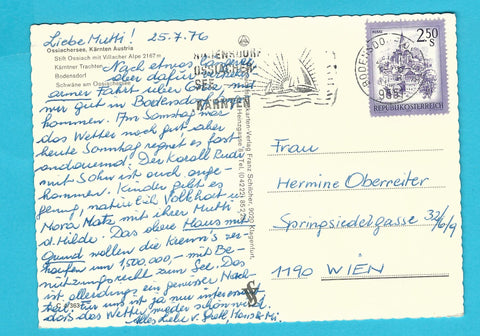 Liebe Mutti! 25.7.76
Ossiachersee, Kärnten Austria
Stift Ossiach mit Villacher Alpe 2167 m
Kärntner Trachten
Bodensdorf
Schwäne am Ossiachersee
Nach etwas
aber dafür
armer Fahrt über Graz
nur gut in Bodensdorf
kommen. Am Samstag war
das Wetter noch gut aber
heute Sonntag regnet es fast
andauernd. Der Korall Rudi
mit Sohn ist auch ange-
kommen. Kinder gibt es
genug, natürlich Volkhart u.
Nora Motz mit ihrer Mutti
d. Hilde. Das obere Haus mit
Grund wollen die
kaufen um 1,500.000 – mit Be-
nutzungsrecht zum See. Das
ist allerdings ein gewisser Nach-
teil, für uns ist ja nur
daß das Wetter wieder schön wird.
Alles Liebe v.
BODENSDORF
OSSIACHER
SEE
KÄRNTEN
2.50
S
REPUBLIK ÖSTERREICH
Karten-Verlag Franz Schilcher, 9020 Klagenfurt,
Frau
Hermine Oberreiter
Springsiedelgasse 32/6/9
1190 WIEN